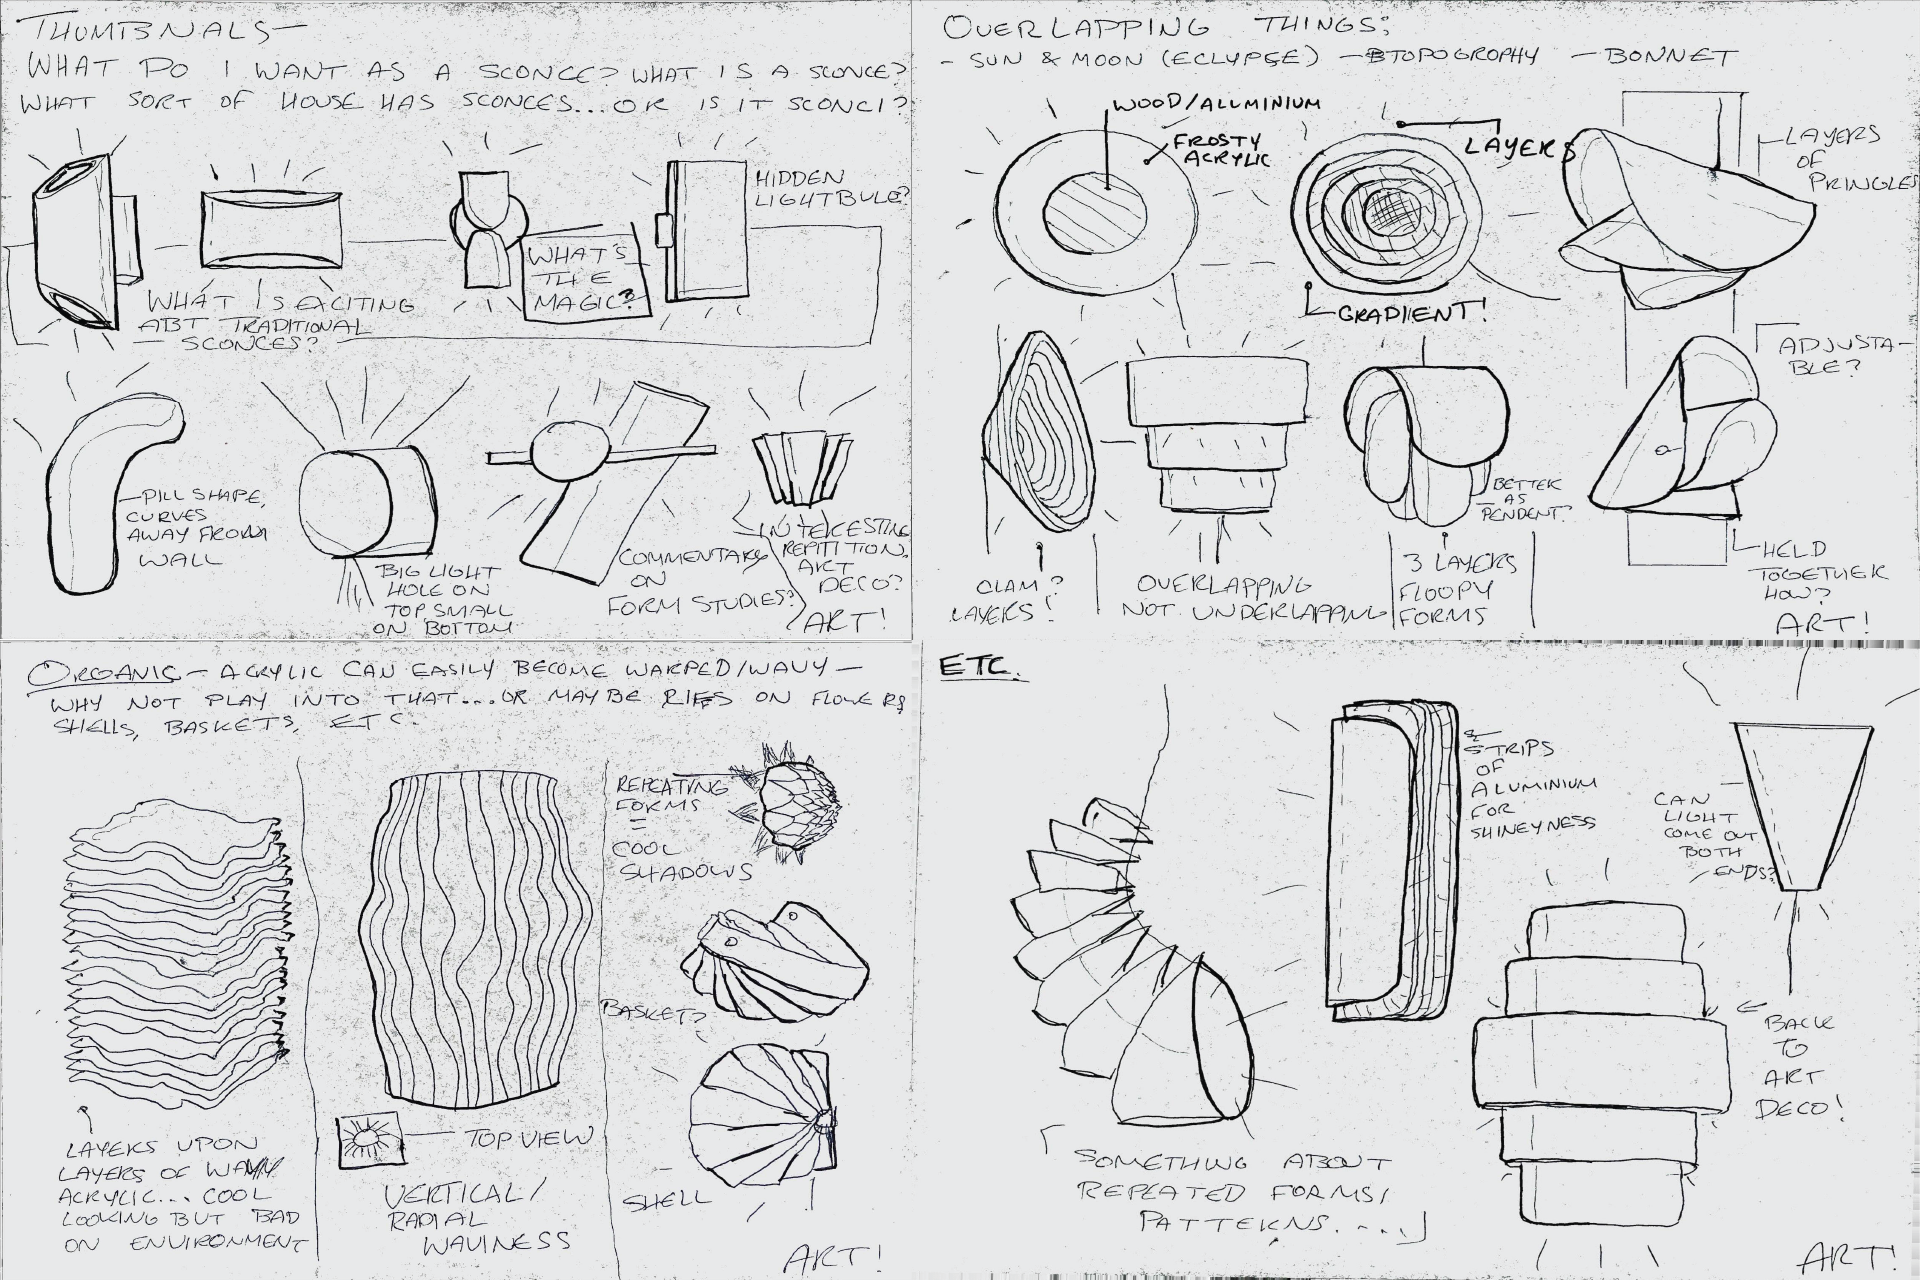 THUMBNALS—
WHAT DO I WANT AS A SCONCE? WHAT IS A SCONCE?
WHAT SORT OF HOUSE HAS SCONCES...OR IS IT SCONCI?
HIDDEN
LIGHTBULB?
WHAT'S
THE
MAGIC?
WHAT IS EXCITING
ABT TRADITIONAL
SCONCES?
PILL SHAPE,
CURVES
AWAY FROM
WALL
BIG LIGHT
HOLE ON
TOP, SMALL
ON BOTTOM
COMMENTARY
ON
FORM STUDIES?
INTERESTING
REPITITION.
ART
DECO?
ART!
OVERLAPPING THINGS:
- SUN & MOON (ECLYPSE) - TOPOGRAPHY - BONNET
WOOD/ALUMINIUM
FROSTY
ACRYLIC
LAYERS
GRADIENT!
LAYERS
OF
PRINGLES
CLAM?
LAYERS!
OVERLAPPING
NOT UNDERLAPPING
3 LAYERS
FLOOPY
FORMS
BETTER
AS
PENDENT?
ADJUSTA-
BLE?
HELD
TOGETHER
HOW?
ART!
ORGANIC - ACRYLIC CAN EASILY BECOME WARPED/WAVY -
WHY NOT PLAY INTO THAT...OR MAYBE RIFFS ON FLOWERS
SHELLS, BASKETS, ETC.
LAYERS UPON
LAYERS OF WAVY
ACRYLIC... COOL
LOOKING BUT BAD
ON ENVIRONMENT
TOP VIEW
VERTICAL/
RADIAL
WAVINESS
REPEATING
FORMS
=
COOL
SHADOWS
BASKET?
SHELL
ART!
ETC.
SOMETHING ABOUT
REPEATED FORMS/
PATTERNS....
STRIPS
OF
ALUMINIUM
FOR
SHINEYNESS
CAN
LIGHT
COME OUT
BOTH
ENDS?
BACK
TO
ART
DECO!
ART!